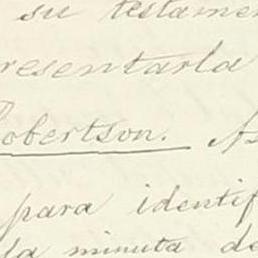 su testamen
resentarla
Robertson. A
para identif
la minuta de